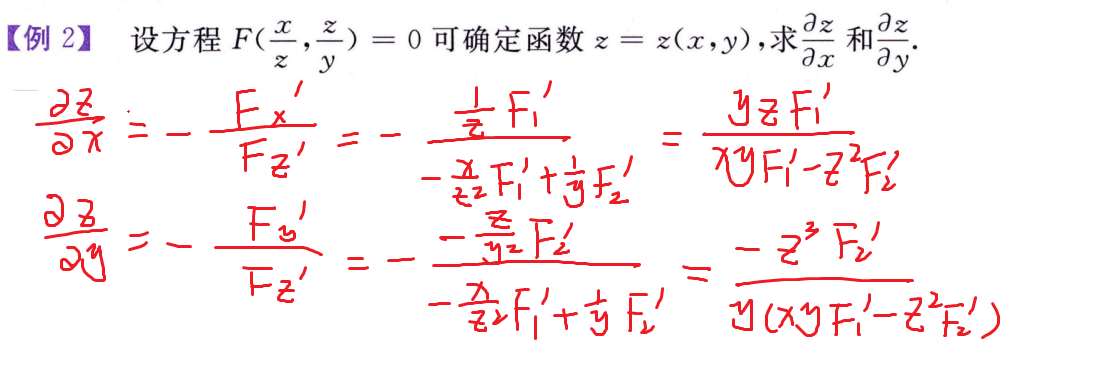 【例 2】 设方程 F(x/z, z/y) = 0 可确定函数 z = z(x,y),求∂z/∂x 和∂z/∂y.
∂z/∂x = - Fx'/Fz' = - (1/z F1')/(-x/z² F1' + 1/y F2') = yzF1'/(xyF1' - z²F2')
∂z/∂y = - Fy'/Fz' = - (-z/y² F2')/(-x/z² F1' + 1/y F2') = -z³F2'/(y(xyF1' - z²F2'))